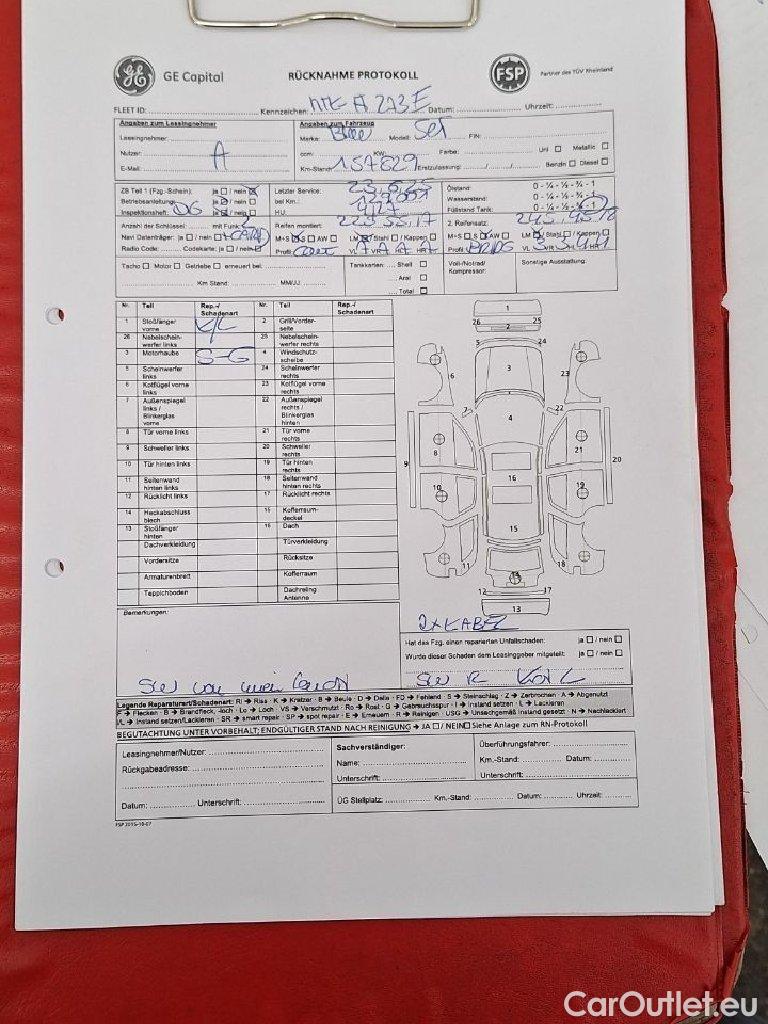 GE Capital
RÜCKNAHME PROTOKOLL
FSP
Partner des TÜV Rheinland
FLEET ID: Kennzeichen: A 273 E Datum: Uhrzeit:
Angaben zum Leasingnehmer
Angaben zum Fahrzeug
Leasingnehmer:
Marke: Modell: FIN:
Nutzer: A
ccm: KW: Farbe: Uni Metallic
E-Mail:
Km-Stand: 157829 Erstzulassung: Benzin Diesel
ZB Teil 1 (Fzg.-Schein): ja / nein
Letzter Service: 23.6.25
Ölstand: 0 - ¼ - ½ - ¾ - 1
Betriebsanleitung: ja / nein
bei Km.:
Wasserstand: 0 - ¼ - ½ - ¾ - 1
Inspektionsheft: DG ja / nein
HU: 4/27
Füllstand Tank: 0 - ¼ - ½ - ¾ - 1
Anzahl der Schlüssel: mit Funk: 2
Reifen montiert: 225 55 17
2. Reifensatz: 245 45 18
Navi Datenträger: ja / nein
M+S S AW LM / Stahl / Kappen
M+S S AW LM / Stahl / Kappen
Radio Code: Codekarte: ja / nein
Profil VL VR HL HR
Profil VL VR HL HR
Tacho Motor Getriebe erneuert bei:
Km Stand: MM/JJ
Tankkarten: Shell
Aral
Total
Voll-/Notrad/
Kompressor:
Sonstige Ausstattung:
Nr. Teil Rep.-/ Schadenart Nr. Teil Rep.-/ Schadenart
1 Stoßfänger vorne K/L 2 Grill/Vorder- seite
26 Nebelschein- werfer links 25 Nebelschein- werfer rechts
3 Motorhaube S-G 4 Windschutz- scheibe
5 Scheinwerfer links 24 Scheinwerfer rechts
6 Kotflügel vorne links 23 Kotflügel vorne rechts
7 Außenspiegel links / Blinkerglas vorne 22 Außenspiegel rechts / Blinkerglas hinten
8 Tür vorne links 21 Tür vorne rechts
9 Schweller links 20 Schweller rechts
10 Tür hinten links 19 Tür hinten rechts
11 Seitenwand hinten links 18 Seitenwand hinten rechts
12 Rücklicht links 17 Rücklicht rechts
14 Heckabschluss blech 15 Kofferraum- deckel
13 Stoßfänger hinten 16 Dach
Dachverkleidung Türverkleidung
Vordersitze Rücksitze
Armaturenbrett Kofferraum
Teppichboden Dachreling Antenne
1
26 25
2
5 24
3
6 23
7 22
4
8 21
9 20
16
10 19
15
11 18
14
12 17
13
Bemerkungen:
2x KABEL
Hat das Fzg. einen reparierten Unfallschaden: ja / nein
Wurde dieser Schaden dem Leasinggeber mitgeteilt: ja / nein
Legende Reparaturart/Schadenart: Ri → Riss · K → Kratzer · B → Beule · D → Delle · FD → Fehlend · S → Steinschlag · Z → Zerbrochen · A → Abgenutzt
F → Flecken · B → Brandfleck, -loch · Lo → Loch · VS → Verschmutzt · Ro → Rost · G → Gebrauchsspur · I → Instand setzen · L → Lackieren
I/L → Instand setzen/Lackieren · SR → smart repair · SP → spot repair · E → Erneuern · R → Reinigen · USG → Unsachgemäß instand gesetzt · N → Nachlackiert
BEGUTACHTUNG UNTER VORBEHALT; ENDGÜLTIGER STAND NACH REINIGUNG → JA / NEIN Siehe Anlage zum RN-Protokoll
Leasingnehmer/Nutzer:
Rückgabeadresse:
Datum: Unterschrift:
Sachverständiger:
Name:
Unterschrift:
Überführungsfahrer:
Km.-Stand: Datum:
Unterschrift:
ÜG Stellplatz: Km.-Stand: Datum: Uhrzeit:
FSP 2015-10-07
CarOutlet.eu